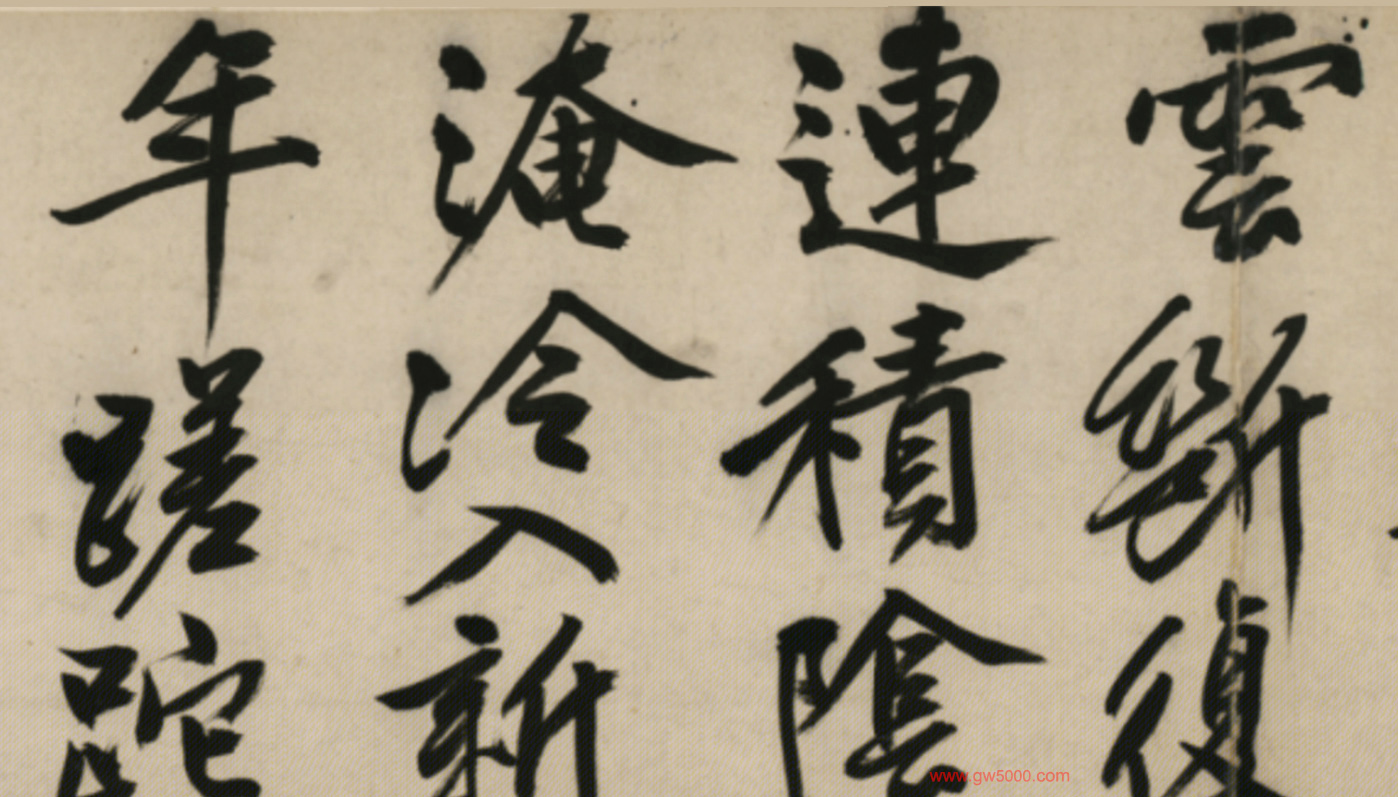 雲斷復
連積陰
淹冷入新
年蹉跎
www.gw5000.com